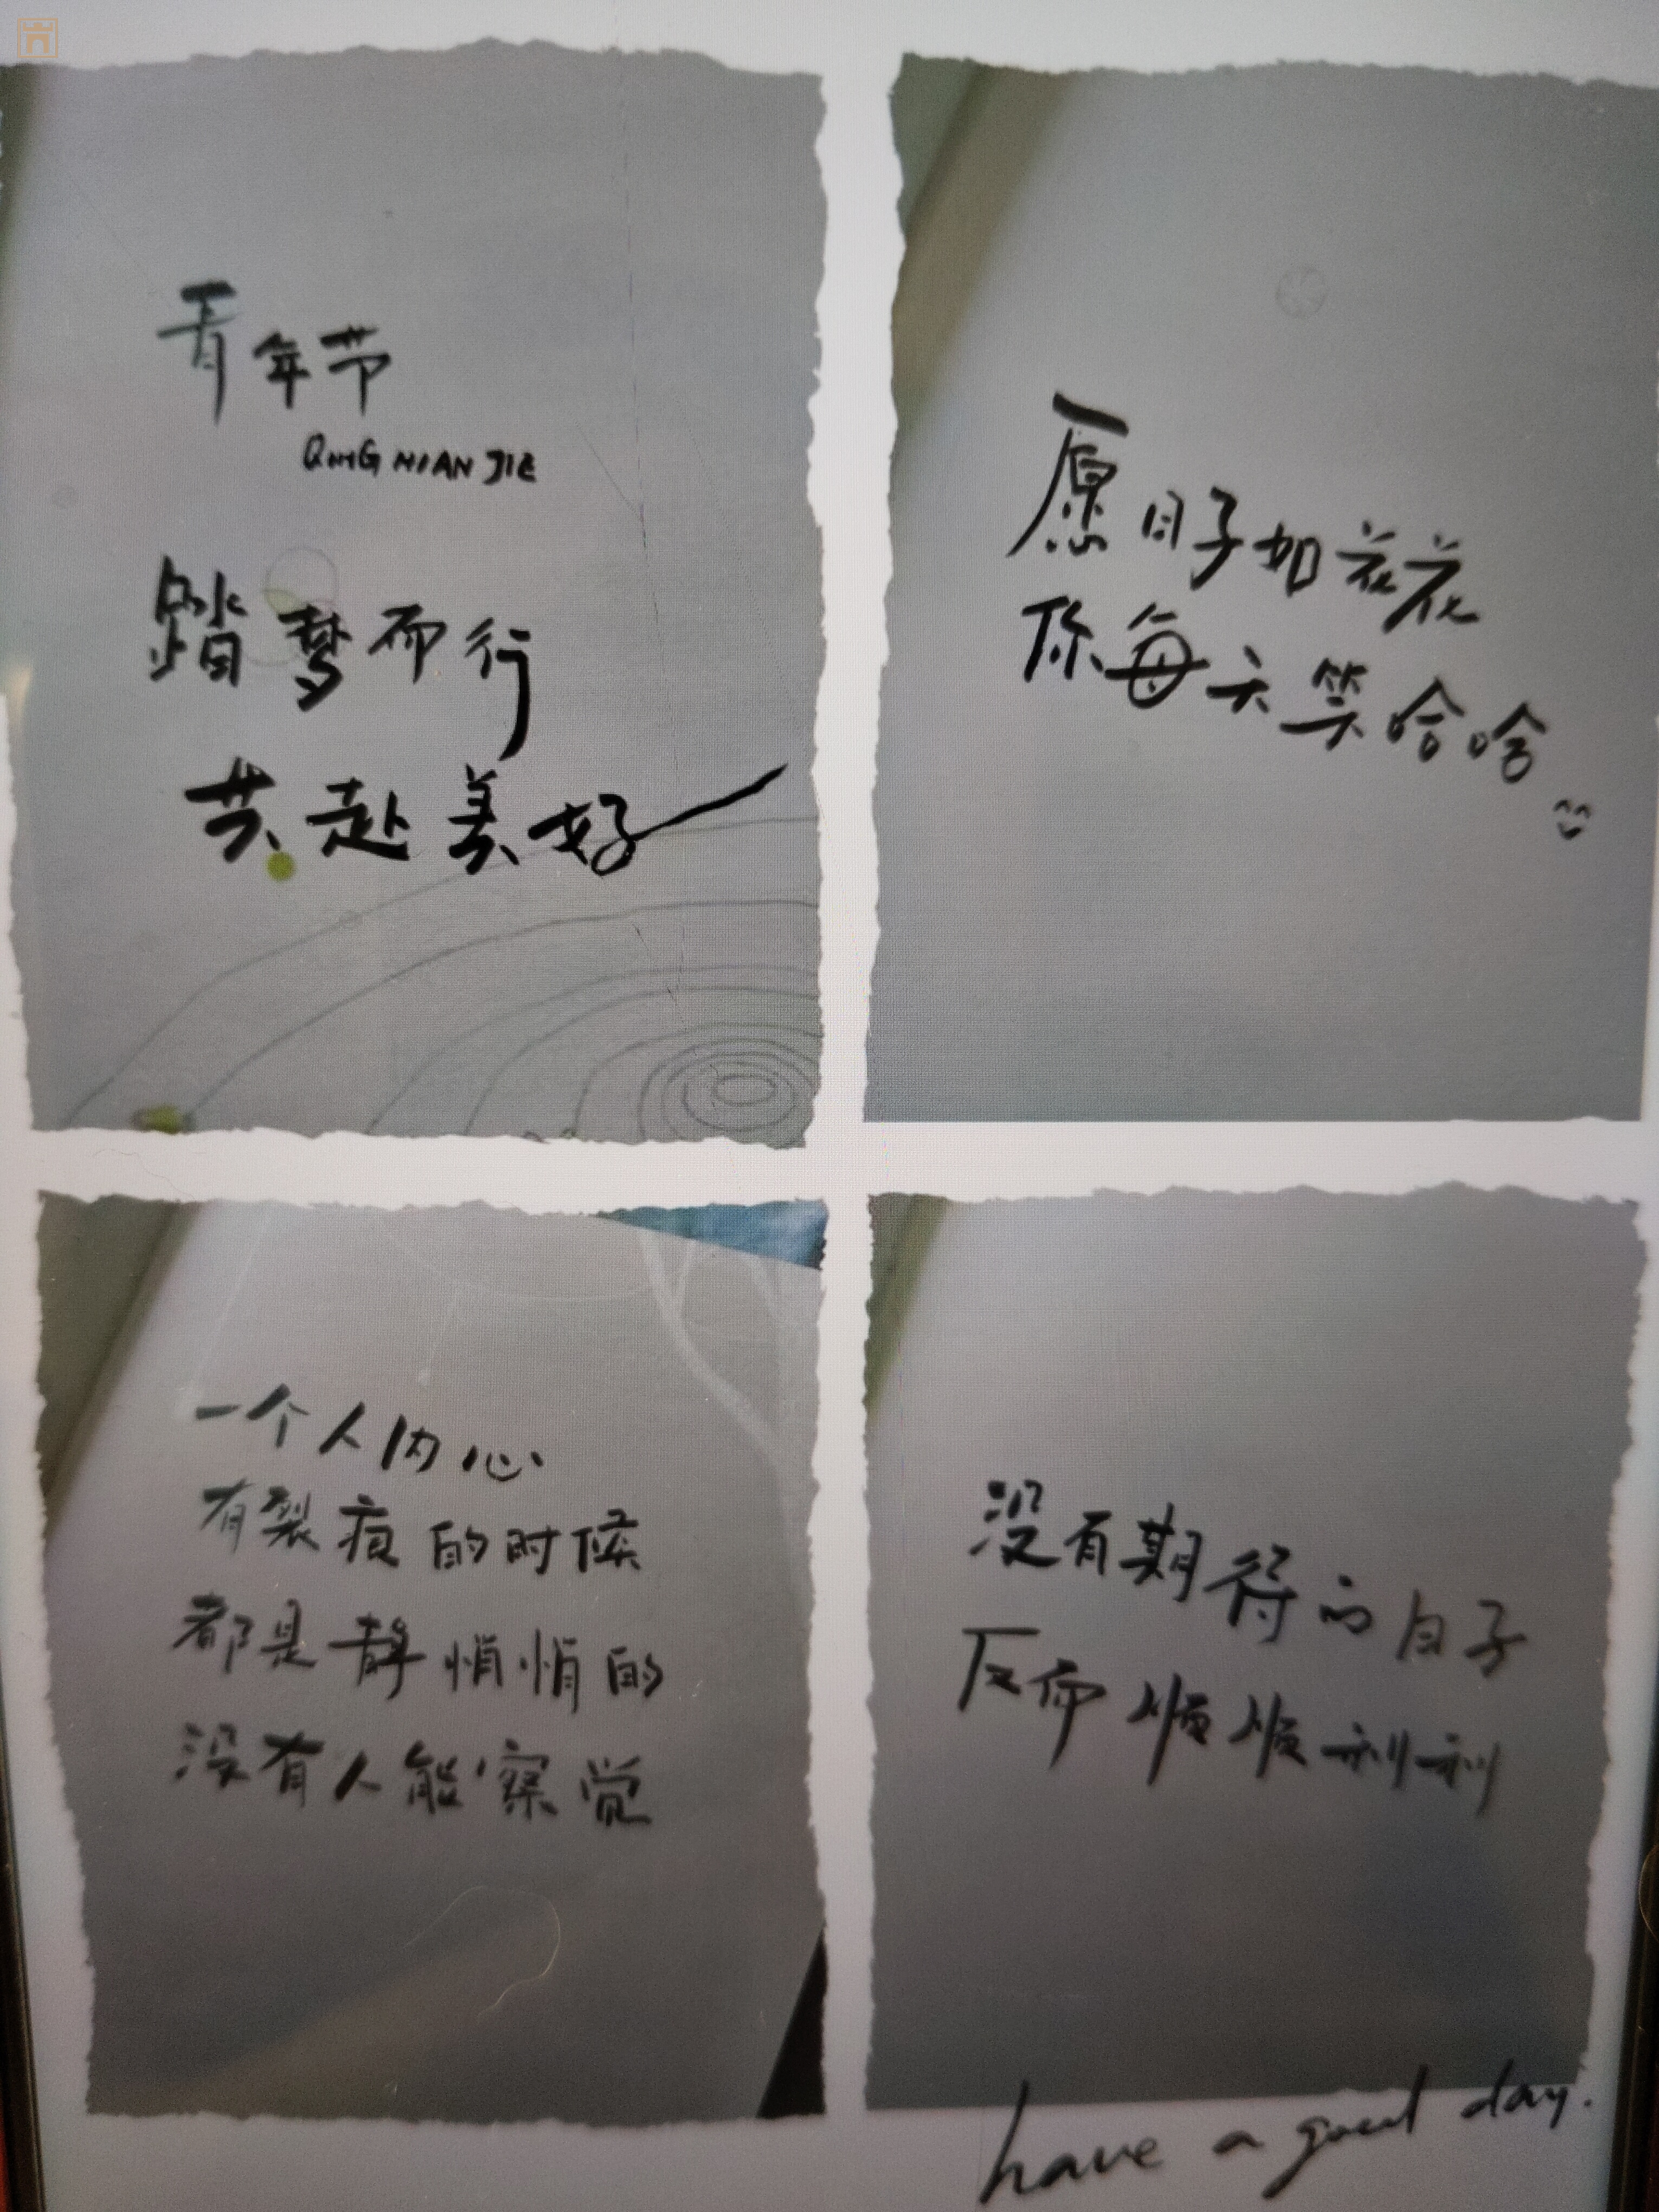 青年节
QING NIAN JIE
踏梦而行
共赴美好
愿日子如花花
你每天笑哈哈
一个人内心
有裂痕的时候
都是静悄悄的
没有人能察觉
没有期待的日子
反而顺顺利利
have a good day.